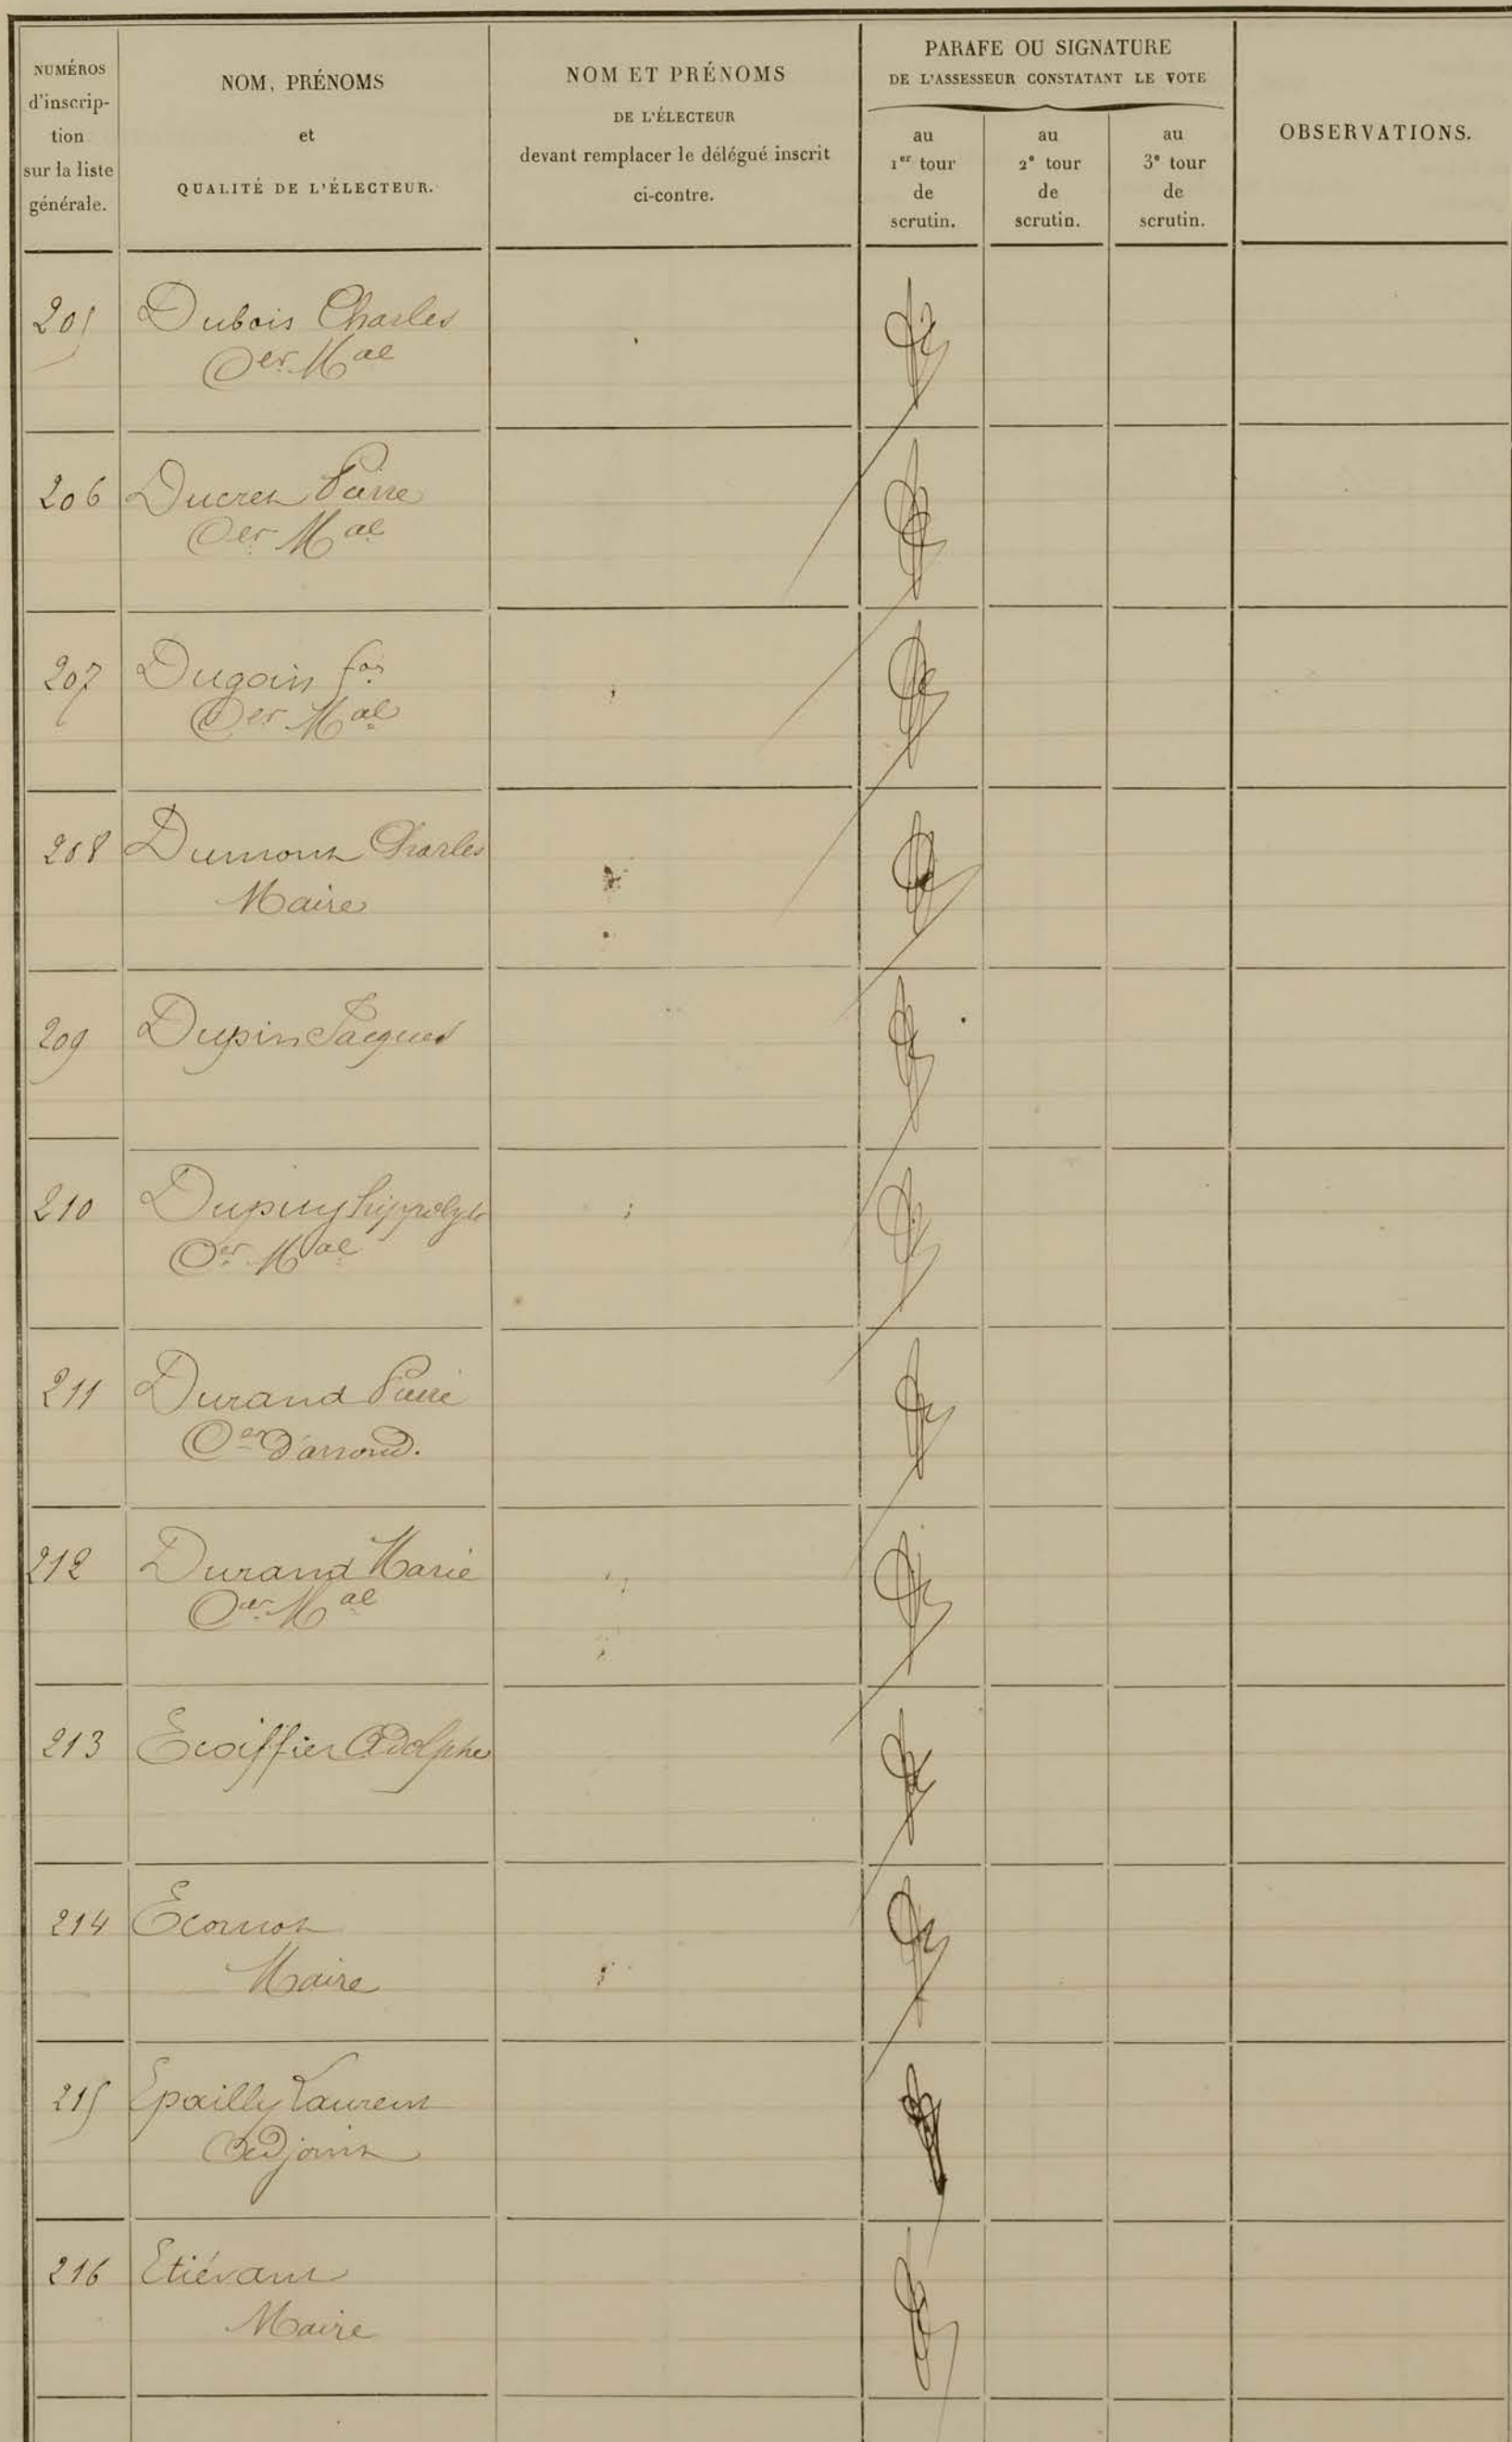 NUMÉROS
d'inscrip-
tion
sur la liste
générale.
NOM, PRÉNOMS
et
QUALITÉ DE L'ÉLECTEUR.
NOM ET PRÉNOMS
DE L'ÉLECTEUR
devant remplacer le délégué inscrit
ci-contre.
PARAFE OU SIGNATURE
DE L'ASSESSEUR CONSTATANT LE VOTE
au
1er tour
de
scrutin.
au
2e tour
de
scrutin.
au
3e tour
de
scrutin.
OBSERVATIONS.
205 Dubois Charles
Cer Mal
206 Ducret Pierre
Cer Mal
207 Dugoin fois
Cer Mal
208 Dumont Charles
Maire
209 Dupin Jacques
210 Dupuy hippolyte
Cer Mal
211 Durand Pierre
Cer d'arrond.
212 Durand Marie
Cer Mal
213 Ecoiffier Adolphe
214 Ecornot
Maire
215 Epailly Laurent
Adjoint
216 Etiévant
Maire